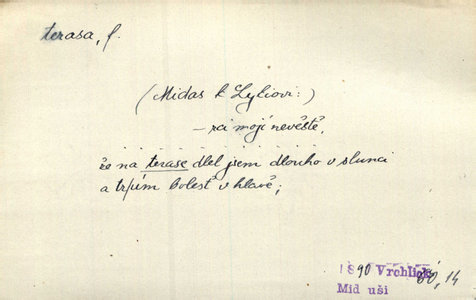 terasa, f.
(Midas k Lyliovi:)
– rci mojí nevěstě,
že na terase dlel jsem dlouho v slunci
a trpím bolesť v hlavě;
1890 Vrchlick
Mid uši 14